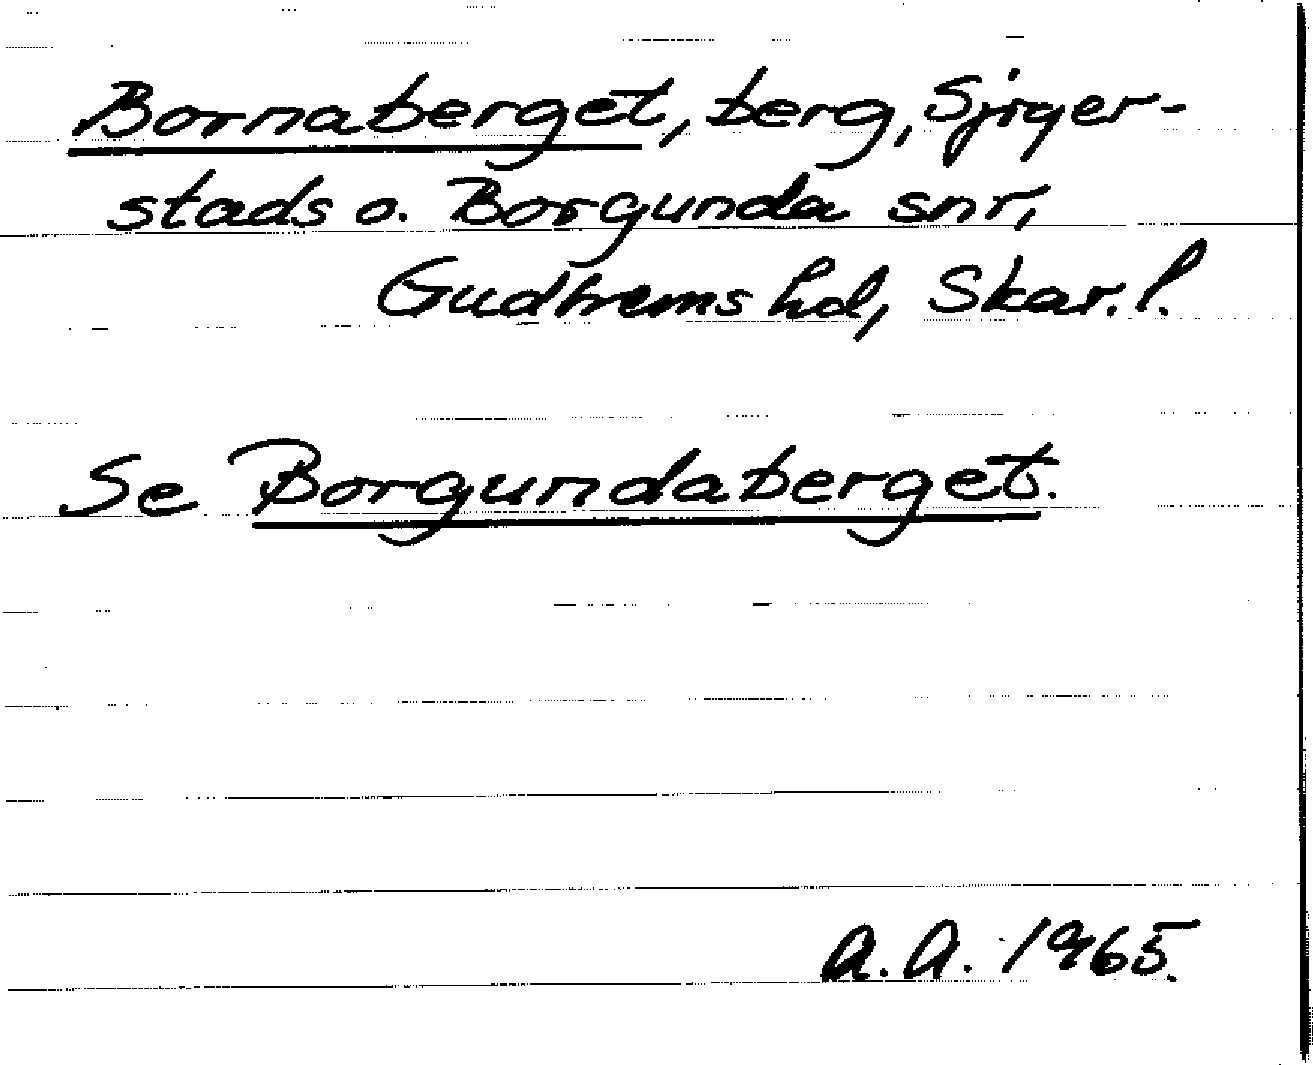 Bornaberget, berg, Sjiger-
stads o. Borgunda snr,
Gudhems hd, Skar. l.
Se Borgundaberget.
A.A. 1965.